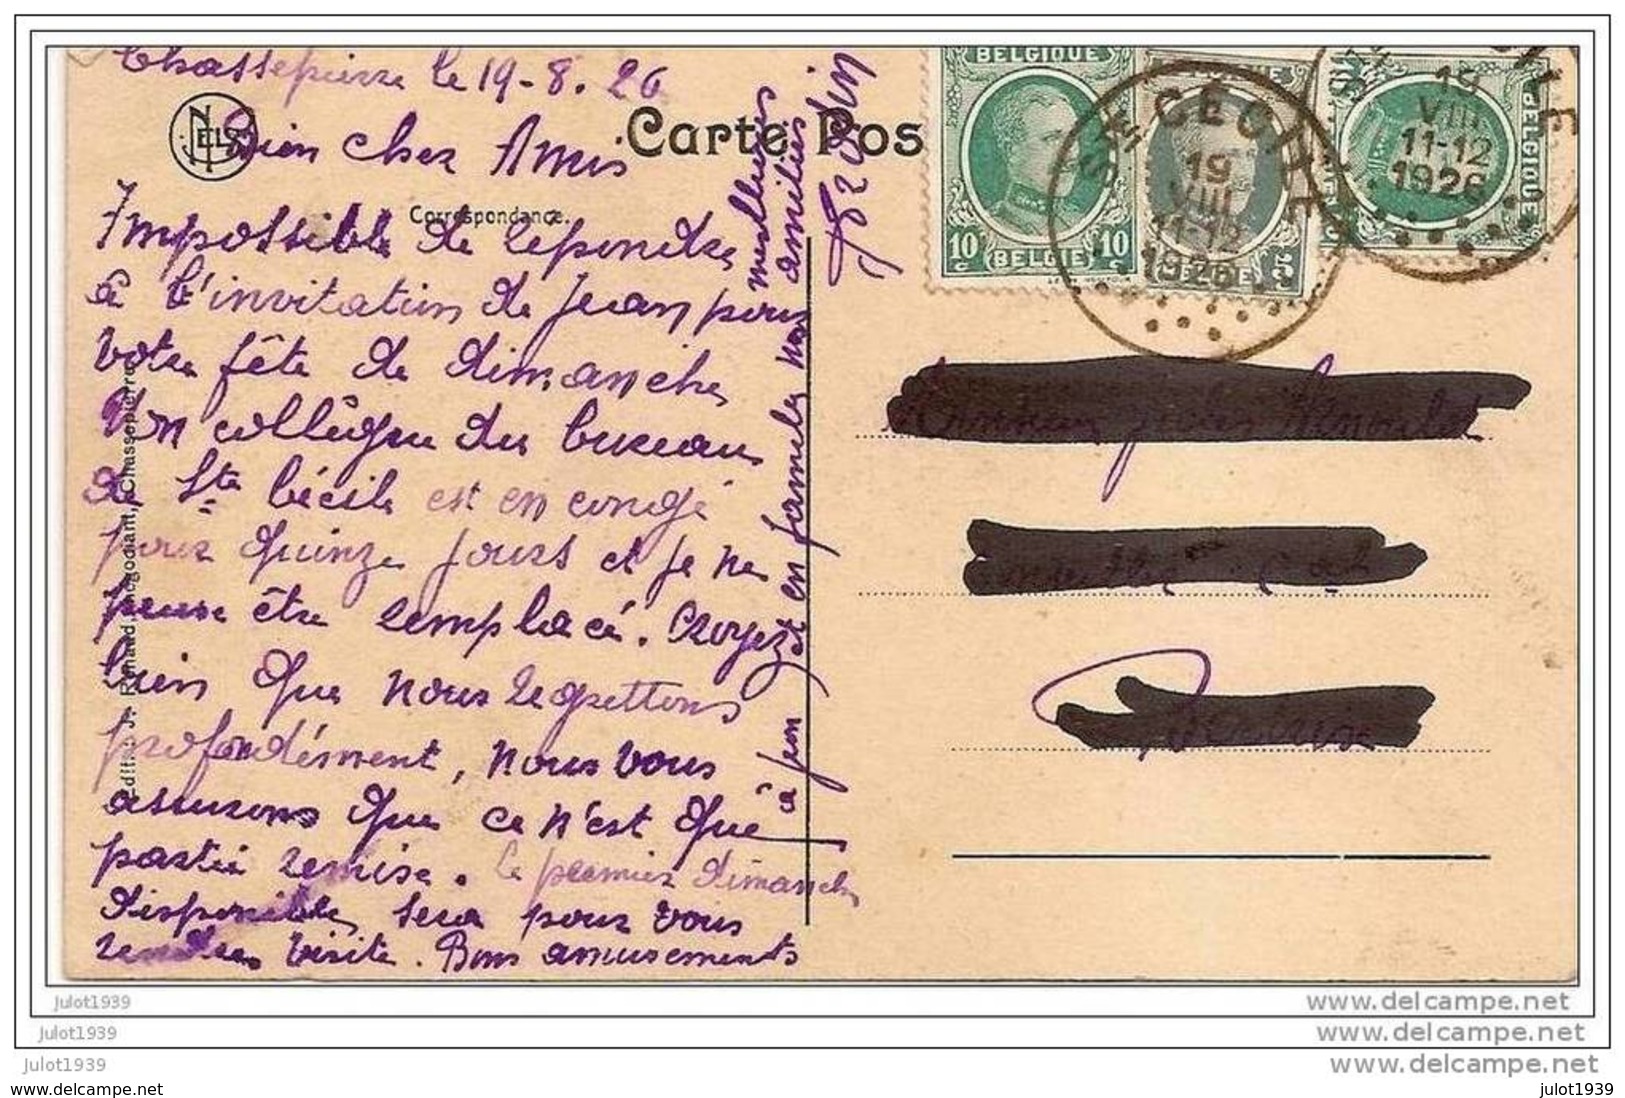 Chassepierre le 19-8.26
Bien cher Amis
Impossible de repondre
à l'invitation de Jean pour
votre fête de dimanche
Mon collègue du bureau
de Ste Cécile est en congé
pour quinze jours et je ne
peux être remplacé. Croyez
bien que nous regrettons
profondément, nous vous
assurons que ce n'est que
partie remise. Le premier dimanche
disponible sera pour vous
rendre visite. Bons amusements
à Jean et en famille nos
meilleurs amitiés
NELS
Carte Pos
Correspondance.
Edit. J. Renaud, négociant, Chassepierre
BELGIQUE
10 c 10 c
BELGIE
STE CÉCILE
19
VIII
11-12
1926
BELGIE
5 c
19
VIII
11-12
1926
BELGIQUE
Julot1939
www.delcampe.net
Julot1939
www.delcampe.net
Julot1939
www.delcampe.net
www.delcampe.net
julot1939